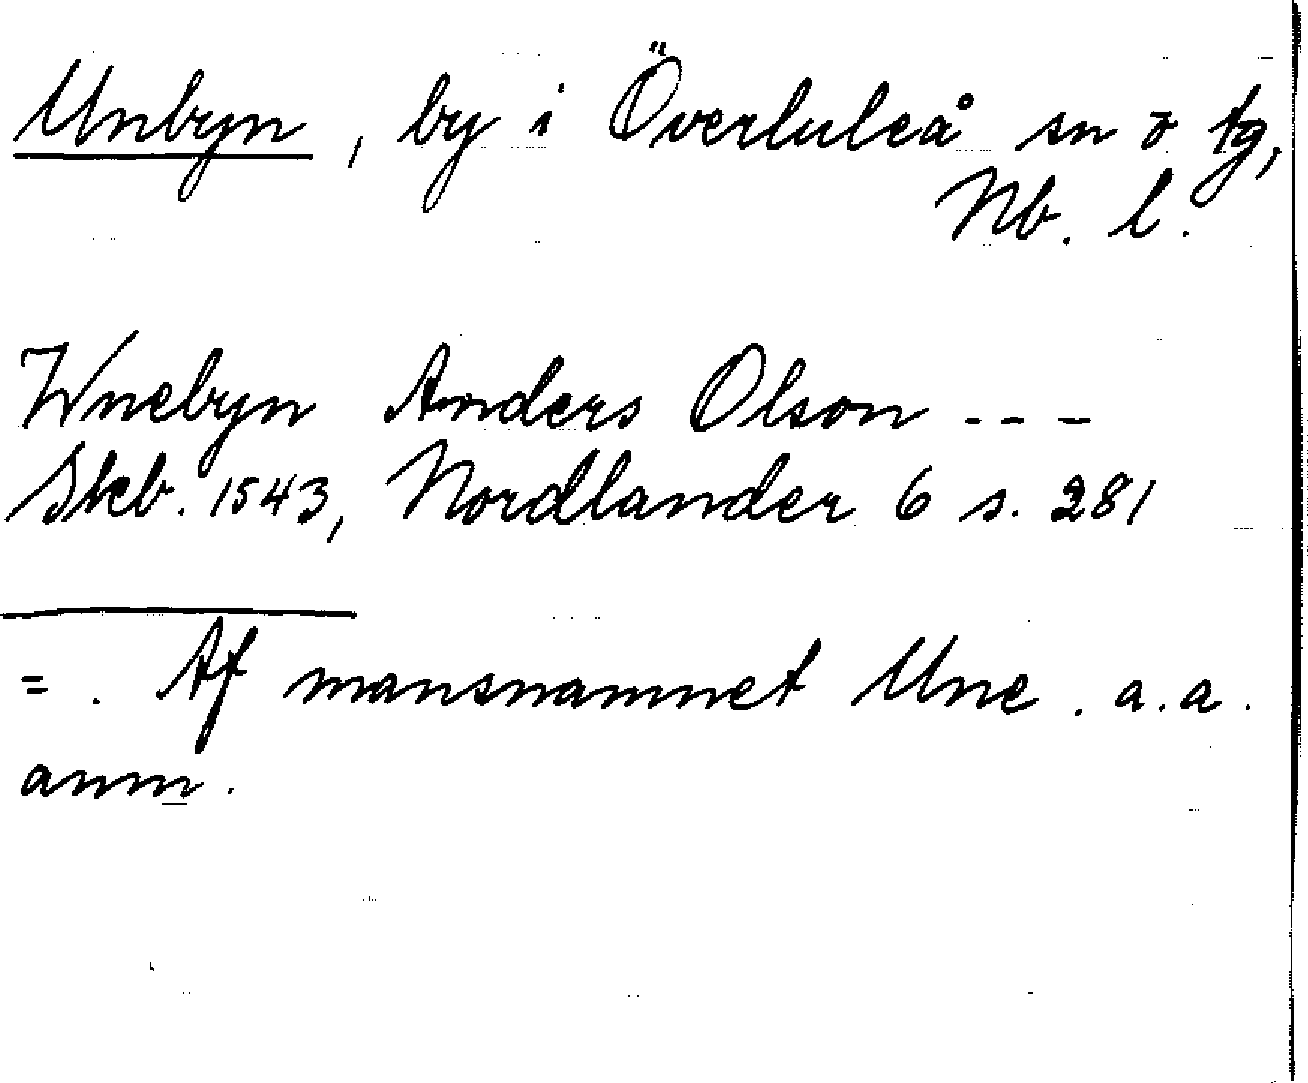 Unbyn, by i Överluleå sn o tg,
Nb. l.
Wnebyn Anders Olson ---
Skb. 1543, Nordlander 6 s. 281
= . Af mansnamnet Une. a.a.
anm.